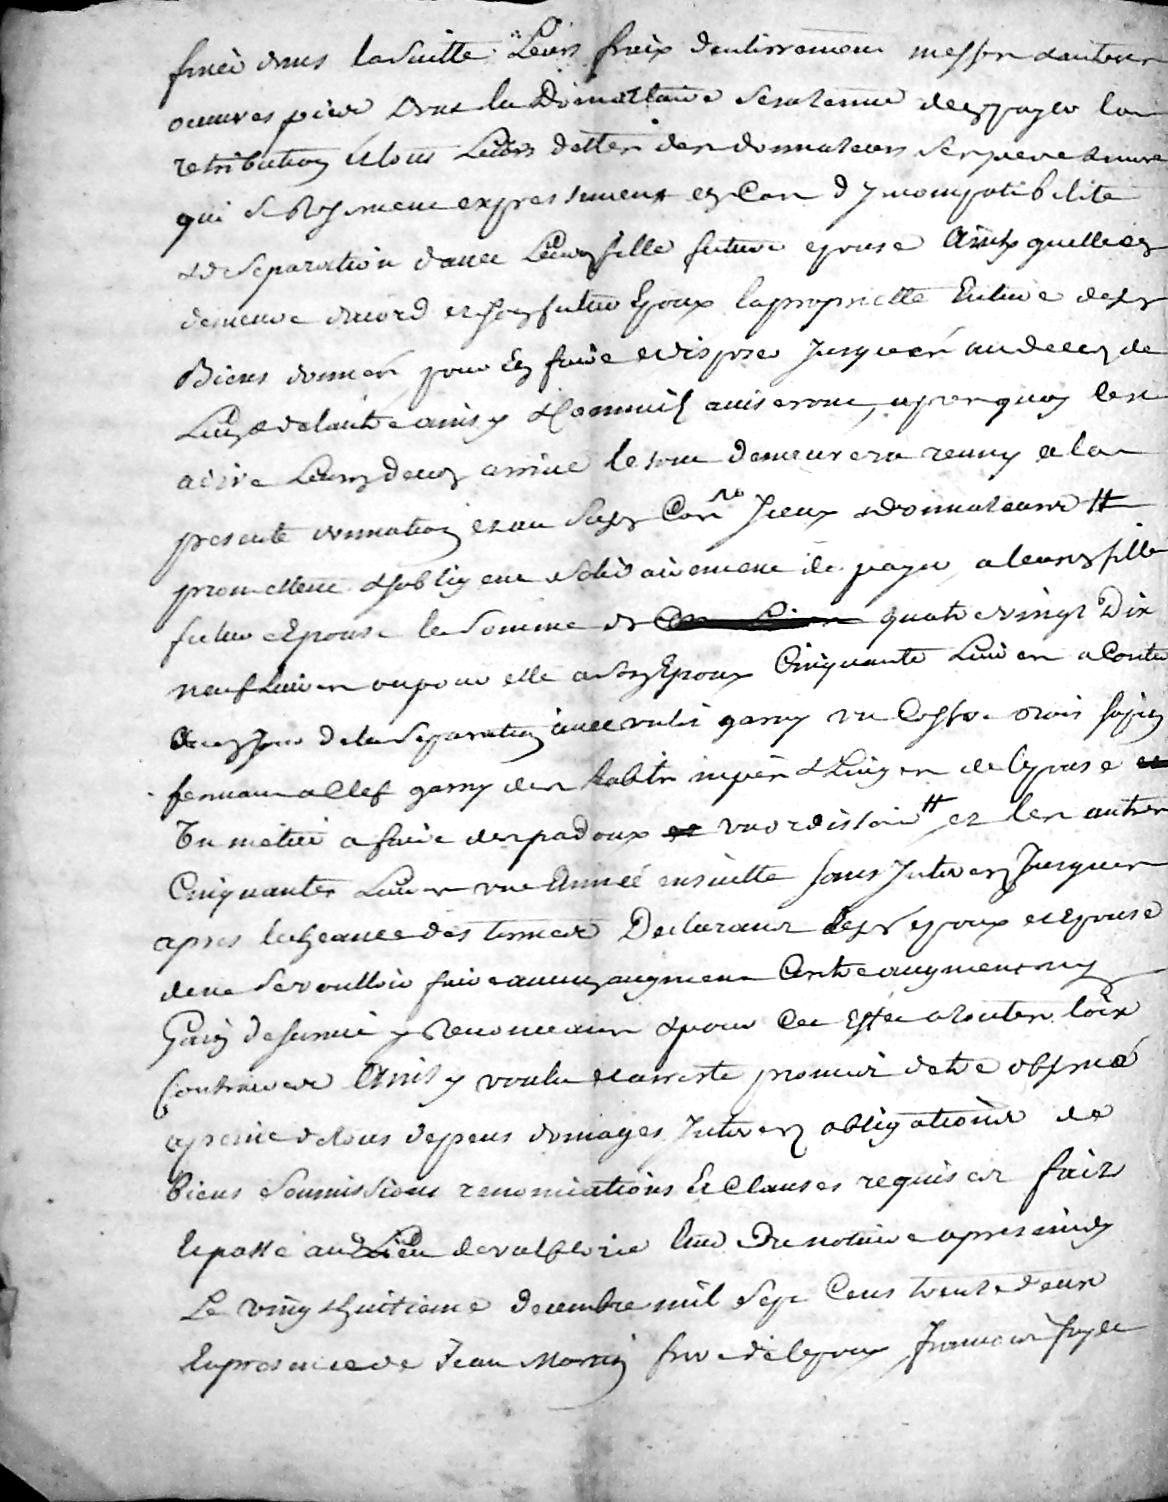 dans la suitte Leurs fraix d'enterrement messes & autres
œuvres pies dont la Donnattaire sera tenue de payer la
retribution & tous Leurs dettes des donnateurs
qui expressement en Cas d'Jncompatibilité
& de separation d'avec Leur fille future epouse
demeure d'acord et son futur Epoux la proprietté Entiere desd
Biens donnés pour En faire et disposer Jusques au deces de
L'un & de l'autre ainsy & Comme ils aviseront, apres quoy les
Leurs deces arrivé le tout demeurera reuny a la
presente donnation et au Surplus Jceux & Donnateurs #
promettent & sobligent solidairement de payer a leurd fille
future Epouse la Somme de quatre vingt Dix
neuf Livres ou pour elle a son Epoux Cinquante Livres a Conter
du Jour de la Separation avec un lit garny un Coffre bois sapin
fermant a Clef garny des habits & Linges de l'epouse
Un metier a faire des padoux un ordissoir # et les autres
Cinquantes Livres une Année ensuitte sans Jnterez Jusques
apres lecheance des termes Declarant lesd epoux et Epouse
de ne se voulloir faire aucun augment Contre augment ny
Gain de survie y renonceant & pour Cet Effet a toutes loix
Contraires Ainsy voulu & arresté promis d'etre observé
a peine de tous depens domages Jnterez obligations de
biens soumissions renonciations Et Clauses requises fait
et passé aud Lieu de Valfleurie Etude Du notaire apres midy
Le vingt huitieme decembre mil Sept Cens trente deux
En presence de Jean Martin frere de l'epoux Francois